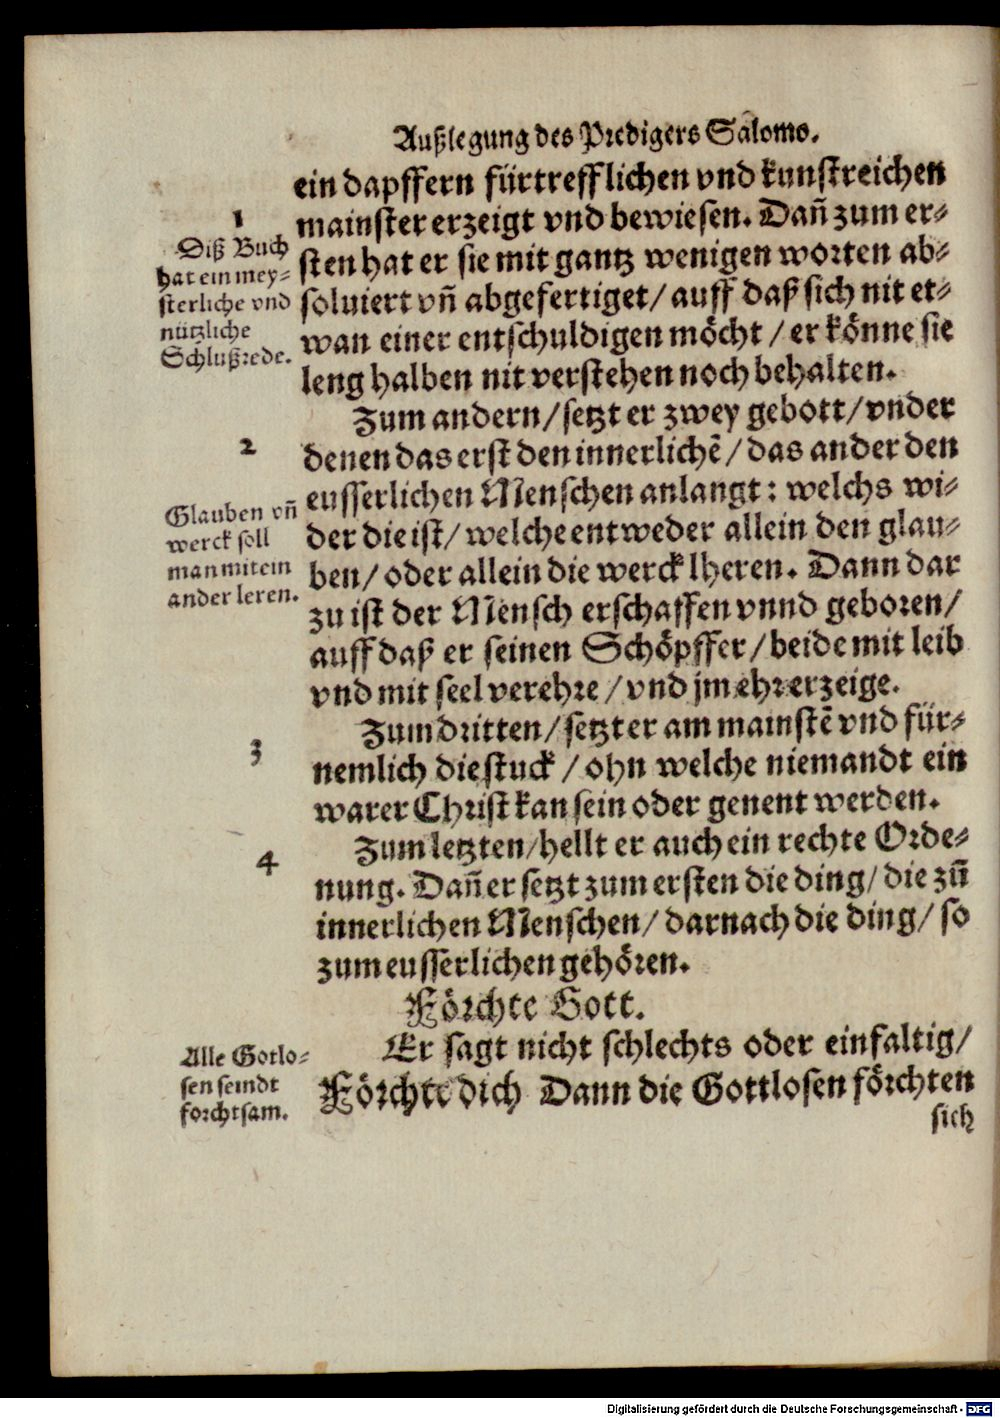 Außlegung des Predigers Salomo.
ein dapffern fürtrefflichen vnd kunstreichen
mainster erzeigt vnd bewiesen. Dañ zum er-
sten hat er sie mit gantz wenigen worten ab-
soluiert vñ abgefertiget/ auff daß sich nit et-
wan einer entschuldigen möcht / er könne sie
leng halben nit verstehen noch behalten.
1
Diß Buch
hat ein mey-
sterliche vnd
nützliche
Schlußrede.
Zum andern/ setzt er zwey gebott/ vnder
denen das erst den innerlichẽ/ das ander den
eusserlichen Menschen anlangt: welchs wi-
der die ist/ welche entweder allein den glau-
ben/ oder allein die werck lheren. Dann dar
zu ist der Mensch erschaffen vnnd geboren/
auff daß er seinen Schöpffer/ beide mit leib
vnd mit seel verehre / vnd jm ehr erzeige.
2
Glauben vñ
werck soll
man mit ein
ander leren.
Zum dritten/ setzt er am mainstẽ vnd für-
nemlich die stuck / ohn welche niemandt ein
warer Christ kan sein oder genent werden.
3
Zum letzten/ hellt er auch ein rechte Orde-
nung. Dañ er setzt zum ersten die ding/ die zũ
innerlichen Menschen/ darnach die ding/ so
zum eusserlichen gehören.
4
Förchte Gott.
Er sagt nicht schlechts oder einfaltig/
Förchte dich Dann die Gottlosen förchten
Alle Gotlo-
sen seindt
forchtsam.
sich
Digitalisierung gefördert durch die Deutsche Forschungsgemeinschaft - DFG